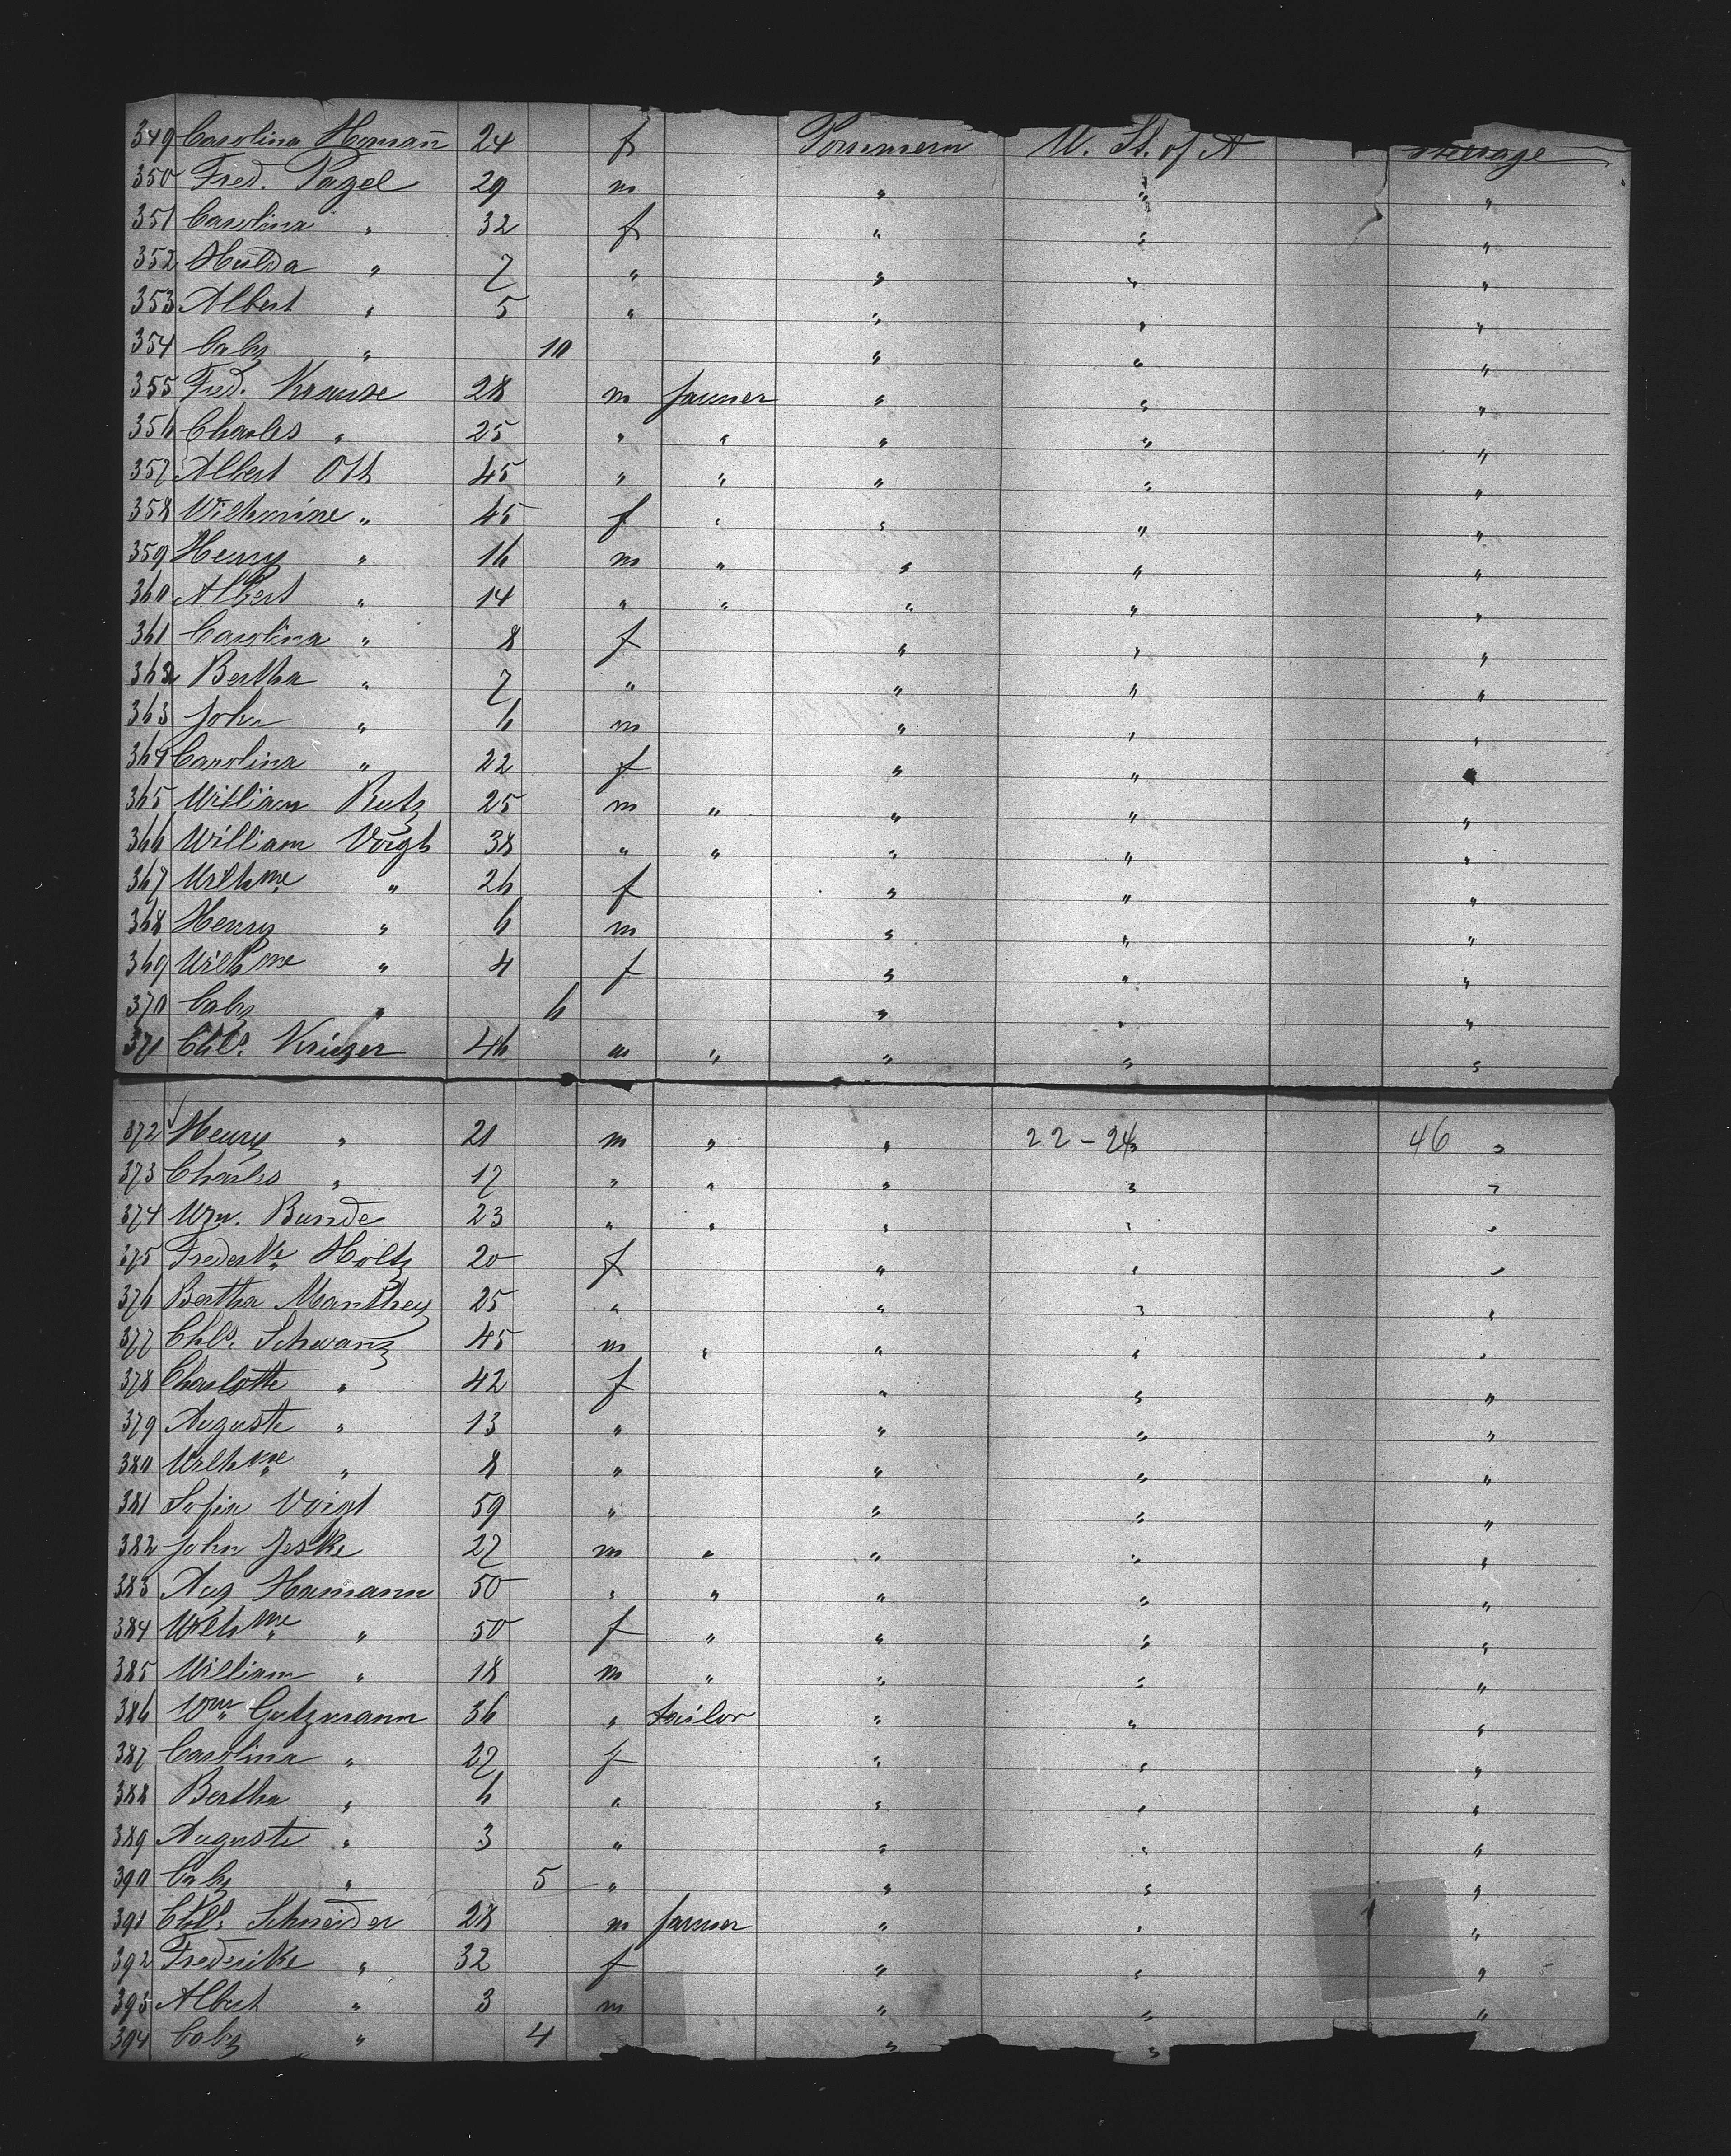 349 Carolina Hamañ 24 f Pommern U. St. of A Steerage
350 Fred. Pagel 29 m " " "
351 Carolina " 32 f " " "
352 Hulda " 7 " " " "
353 Albert " 5 " " " "
354 baby " 10 " " "
355 Fred. Krause 28 m farmer " " "
356 Charles " 25 " " " " "
357 Albert Ott 45 " " " " "
358 Wilhmine " 45 f " " " "
359 Henry " 16 m " " " "
360 Albert " 14 " " " " "
361 Carolina " 8 f " " "
362 Bertha " 7 " " " "
363 John " 6 m " " "
364 Carolina " 22 f " " "
365 William Rutz 25 m " " " "
366 William Voigt 38 " " " " "
367 Wilhme " 26 f " " "
368 Henry " 6 m " " "
369 Wilhme " 4 f " " "
370 baby " 6 " " "
371 Chls. Krieger 46 m " " " "
372 Henry " 21 m " " 22-24 " 46 "
373 Charles " 17 " " " " "
374 Wm. Bunde 23 " " " " "
375 Frederke Holtz 20 f " " "
376 Bertha Manthey 25 " " " "
377 Chls. Schwanz 45 m " " " "
378 Charlotte " 42 f " " "
379 Auguste " 13 " " " "
380 Wilhme " 8 " " " "
381 Sofia Voigt 59 " " " "
382 John Jeske 27 m " " " "
383 Aug Hamann 50 " " " " "
384 Wilhme " 50 f " " " "
385 William " 18 m " " " "
386 Wm Gutzmann 36 " tailor " " "
387 Carolina " 27 f " " "
388 Bertha " 6 " " " "
389 Auguste " 3 " " " "
390 baby " 5 " " " "
391 Chls. Schneider 28 m farmer " " "
392 Frederike " 32 f " " "
393 Albert " 3 m " " "
394 baby " 4 " "